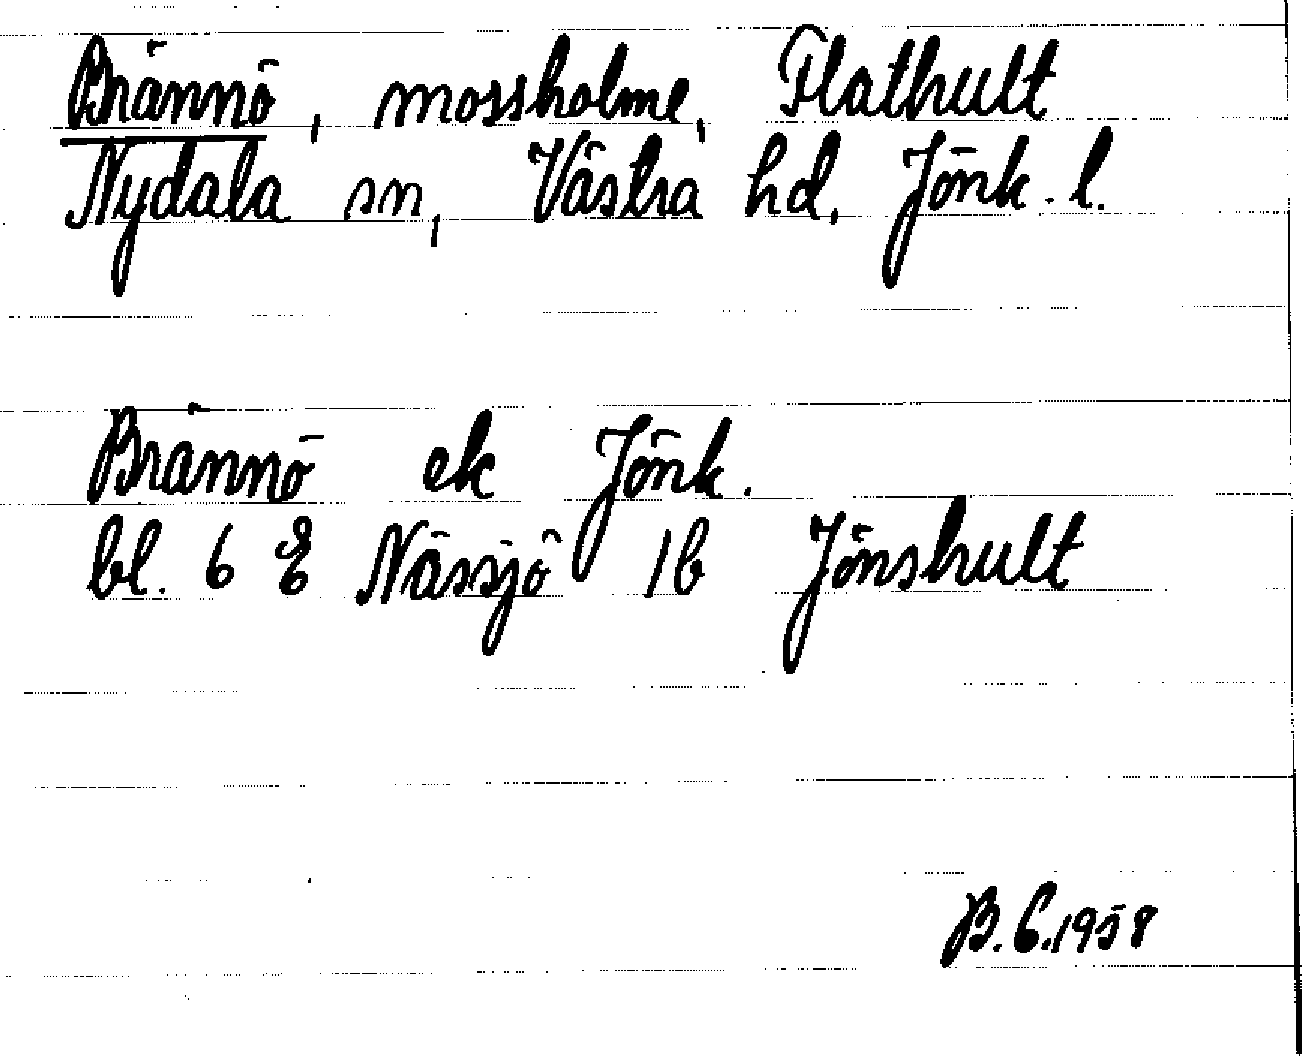 Brännö, mossholme, Flathult
Nydala sn, Västra hd, Jönk. l.
Brännö ek Jönk.
bl. 6 E Nässjö 1b Jönshult
B.E.1958